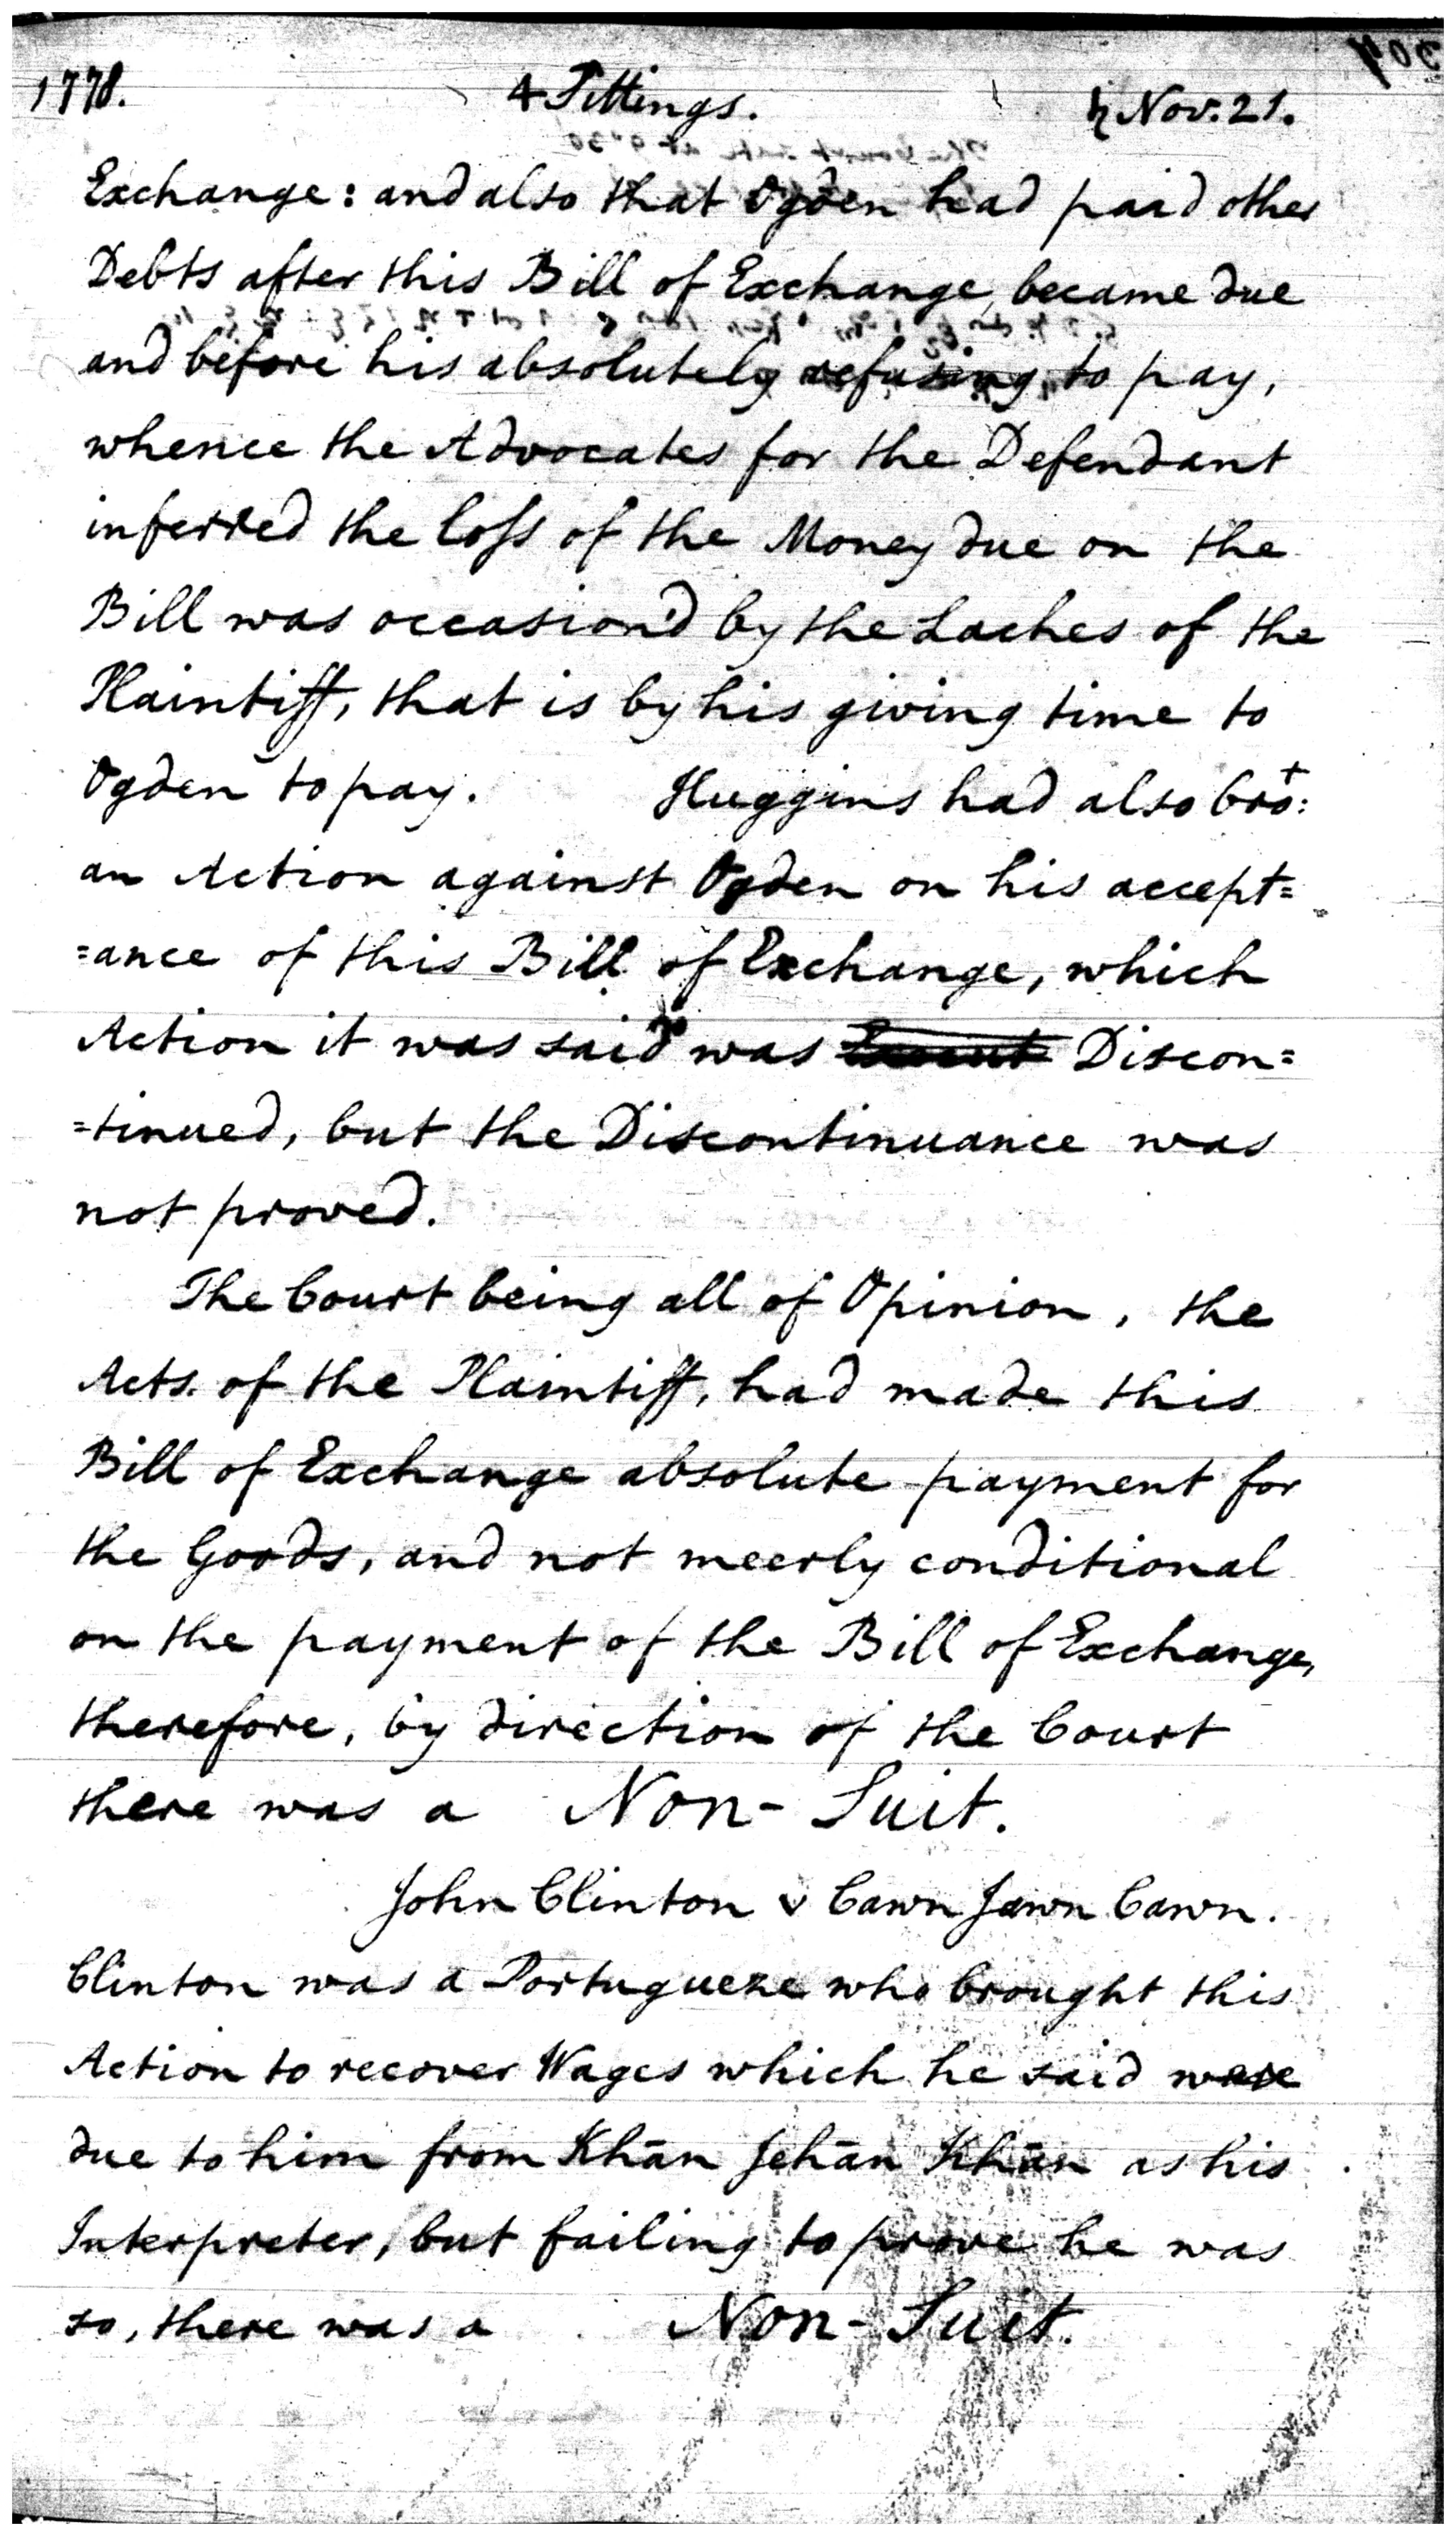 1778. 4 Sittings. ♄ Nov. 21.
Exchange: and also that Ogden had paid other
Debts after this Bill of Exchange, became due
and before his absolutely refusing to pay,
whence the Advocates for the Defendant
inferred the loſs of the Money due on the
Bill was occasion'd by the Laches of the
Plaintiff, that is by his giving time to
Ogden to pay. Huggins had also bro:t
an Action against Ogden on his accept=
=ance of this Bill of Exchange, which
Action it was said was Discon=
=tinued, but the Discontinuance was
not proved.
The Court being all of Opinion, the
Acts of the Plaintiff, had made this
Bill of Exchange absolute payment for
the Goods, and not meerly conditional
on the payment of the Bill of Exchange,
therefore, by direction of the Court
there was a Non-Suit.
John Clinton v Cawn Jawn Cawn.
Clinton was a Portugueze who brought this
Action to recover Wages which he said were
due to him from Khān Jehān Khān as his
Interpreter, but failing to prove he was
so, there was a Non-Suit.